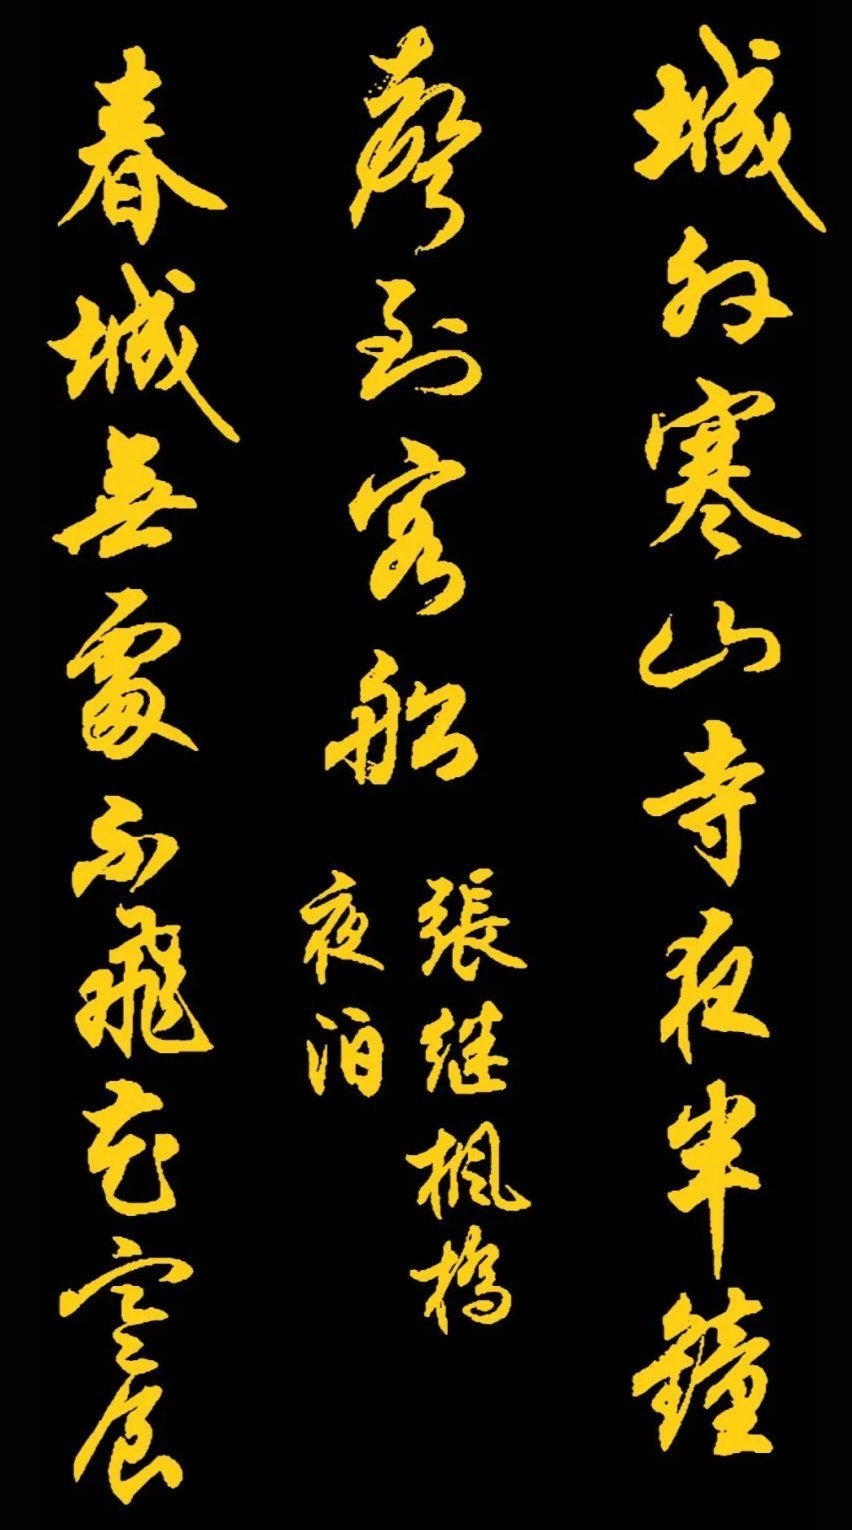 城外寒山寺夜半鐘
聲到客船
張继楓橋
夜泊
春城無處不飛花寒食